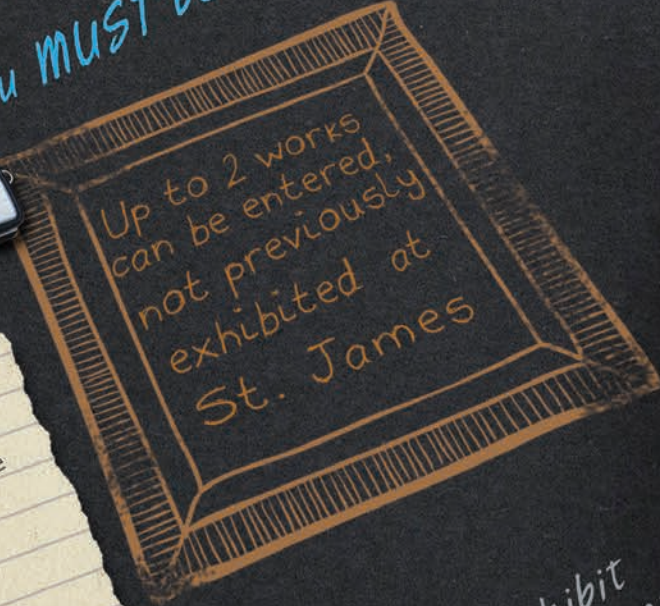 MUST
Up to 2 works
can be entered,
not previously
exhibited at
St. James